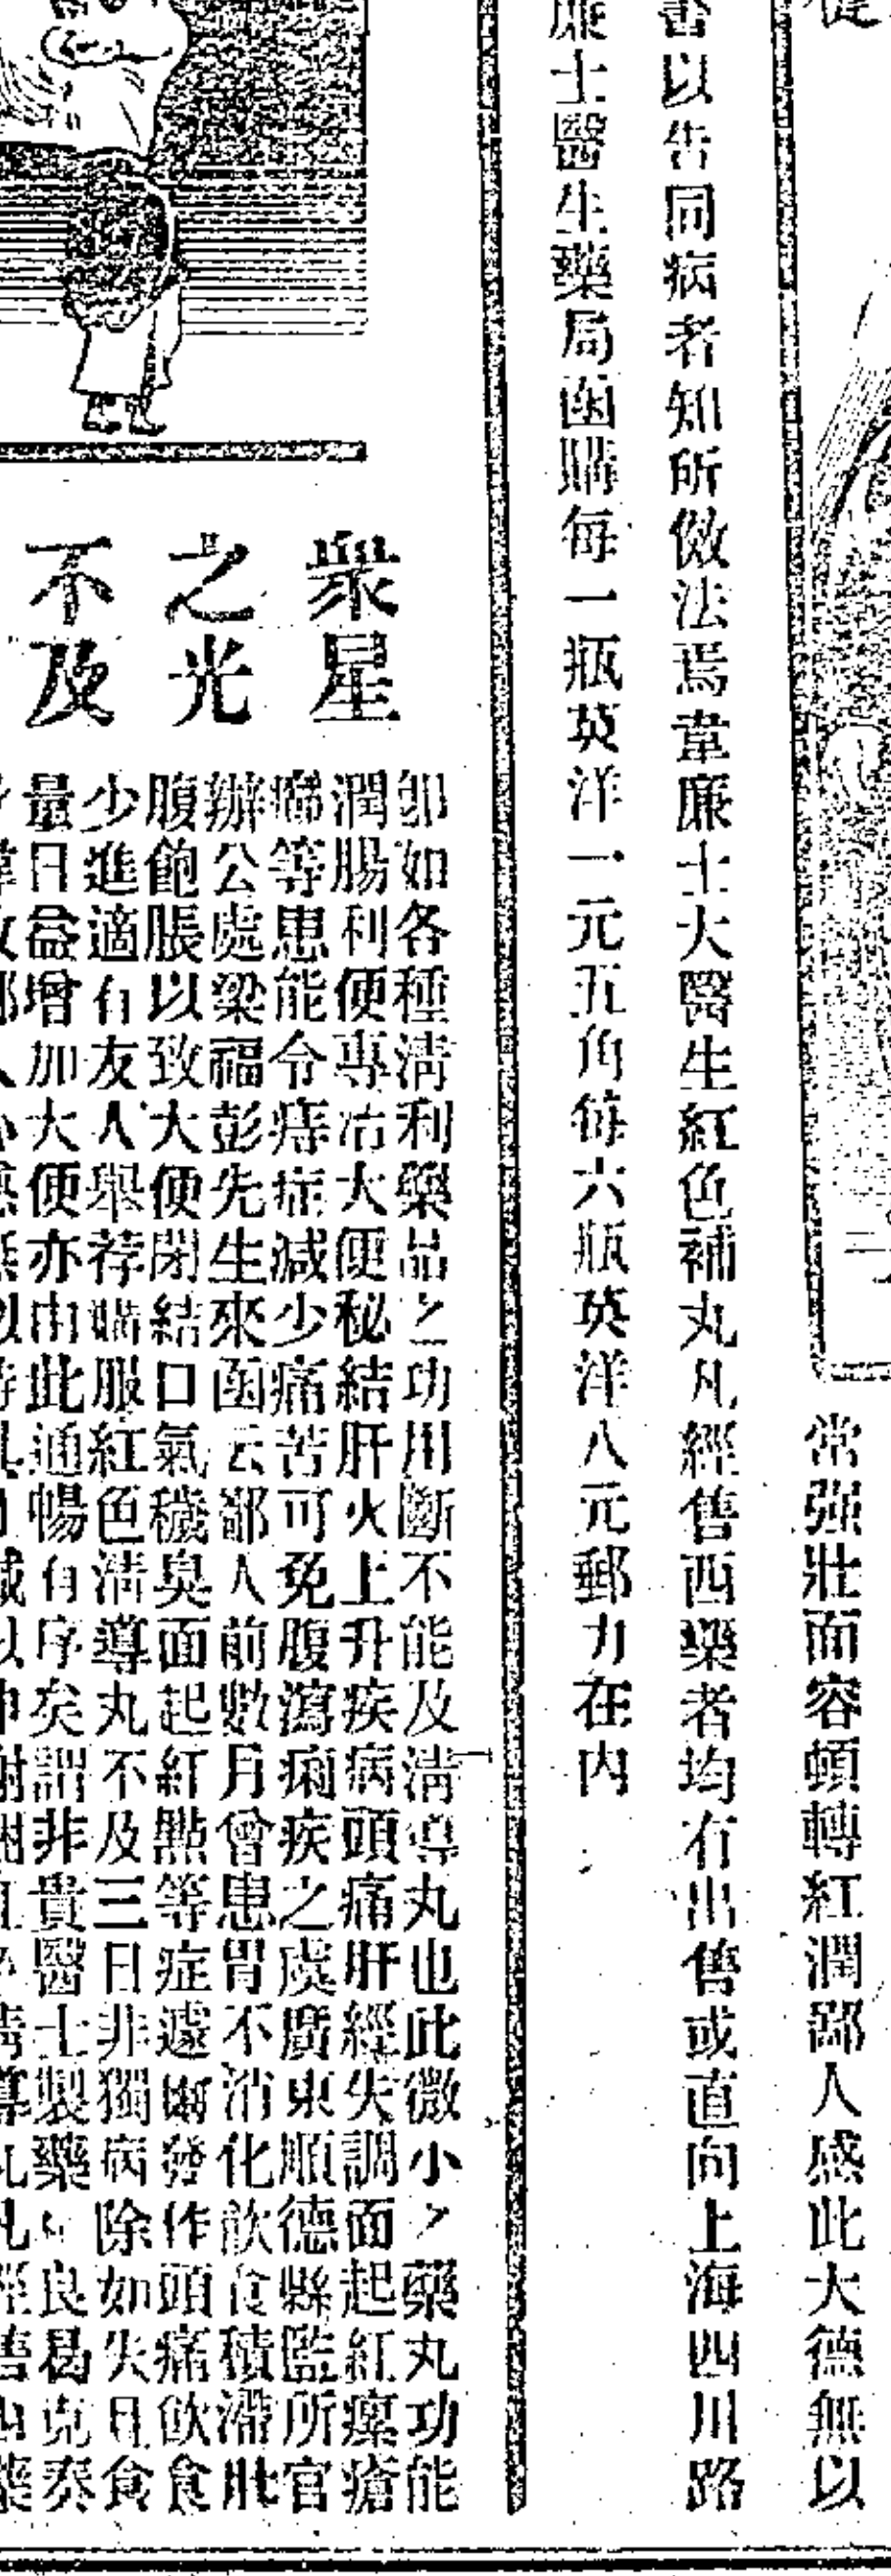 常强壯面容頓轉紅潤鄙人感此大德無以
書以告同病者知所倣法焉韋廉士大醫生紅色補丸凡經售西藥者均有出售或直向上海四川路
廉士醫生藥局函購每一瓶英洋一元五角每六瓶英洋八元郵力在內
衆星
之光
不及
卽如各種淸利藥品之功用斷不能及淸導丸也此微小之藥丸功能
潤腸利便專治大便秘結肝火上升疾病頭痛肝經失調面起紅瘰瘡
癤等患能令痔症減少痛苦可免腹瀉痢疾之虞廣東順德縣監所官
辦公處梁福彭先生來函云鄙人前數月曾患胃不消化飲食積滯肚
腹飽脹以致大便閉結口氣穢臭面起紅點等症遽爾發作頭痛飲食
少進適有友人舉荐購服紅色淸導丸不及三日非獨病除如失且食
量日益增加大便亦由此通暢有序矣謂非貴醫士製藥之良曷克奏